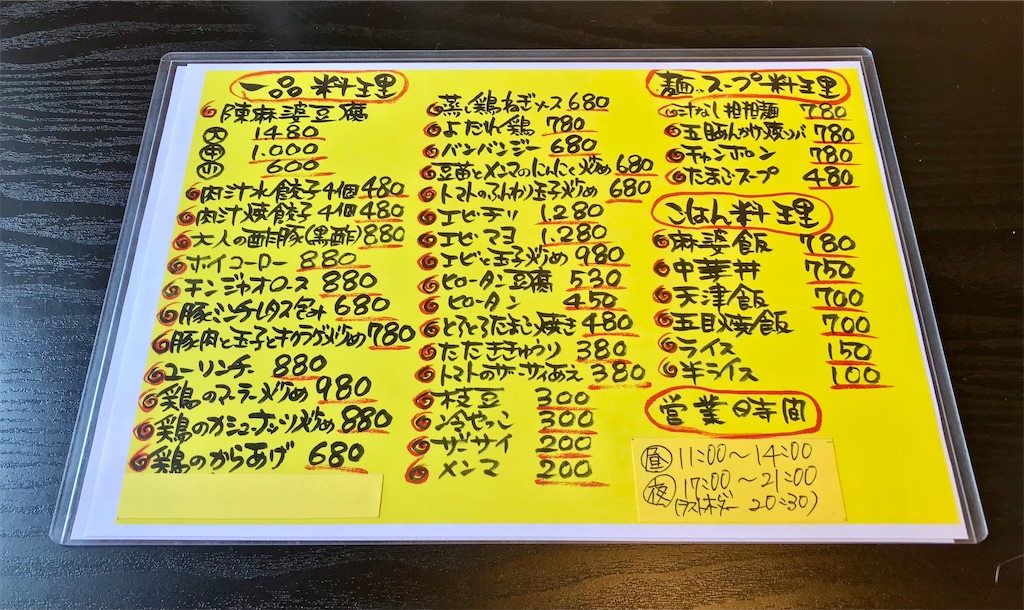 一品料理
陳麻婆豆腐
大 1480
中 1.000
小 600
肉汁水餃子4個 480
肉汁焼餃子4個 480
大人の酢豚(黒酢) 880
ホイコーロー 880
チンジャオロース 880
豚ミンチレタス包み 680
豚肉と玉子とキクラゲ炒め 780
ユーリンチー 880
鶏のマーラー炒め 980
鶏のカシューナッツ炒め 880
鶏のからあげ 680
蒸し鶏ねぎソース 680
よだれ鶏 780
バンバンジー 680
豆苗とメンマのにんにく炒め 680
トマトのふんわり玉子炒め 680
エビチリ 1.280
エビマヨ 1.280
エビと玉子炒め 980
ピータン豆腐 530
ピータン 450
とろとろたまご焼き 480
たたききゅうり 380
トマトのザーサイあえ 380
枝豆 300
冷やっこ 300
ザーサイ 200
メンマ 200
麺.スープ料理
汁なし担担麺 780
五目あんかけ焼ソバ 780
チャンポン 780
たまごスープ 480
ごはん料理
麻婆飯 780
中華丼 750
天津飯 700
五目焼飯 700
ライス 150
半ライス 100
営業時間
昼 11:00〜14:00
夜 17:00〜21:00
(ラストオーダー 20:30)